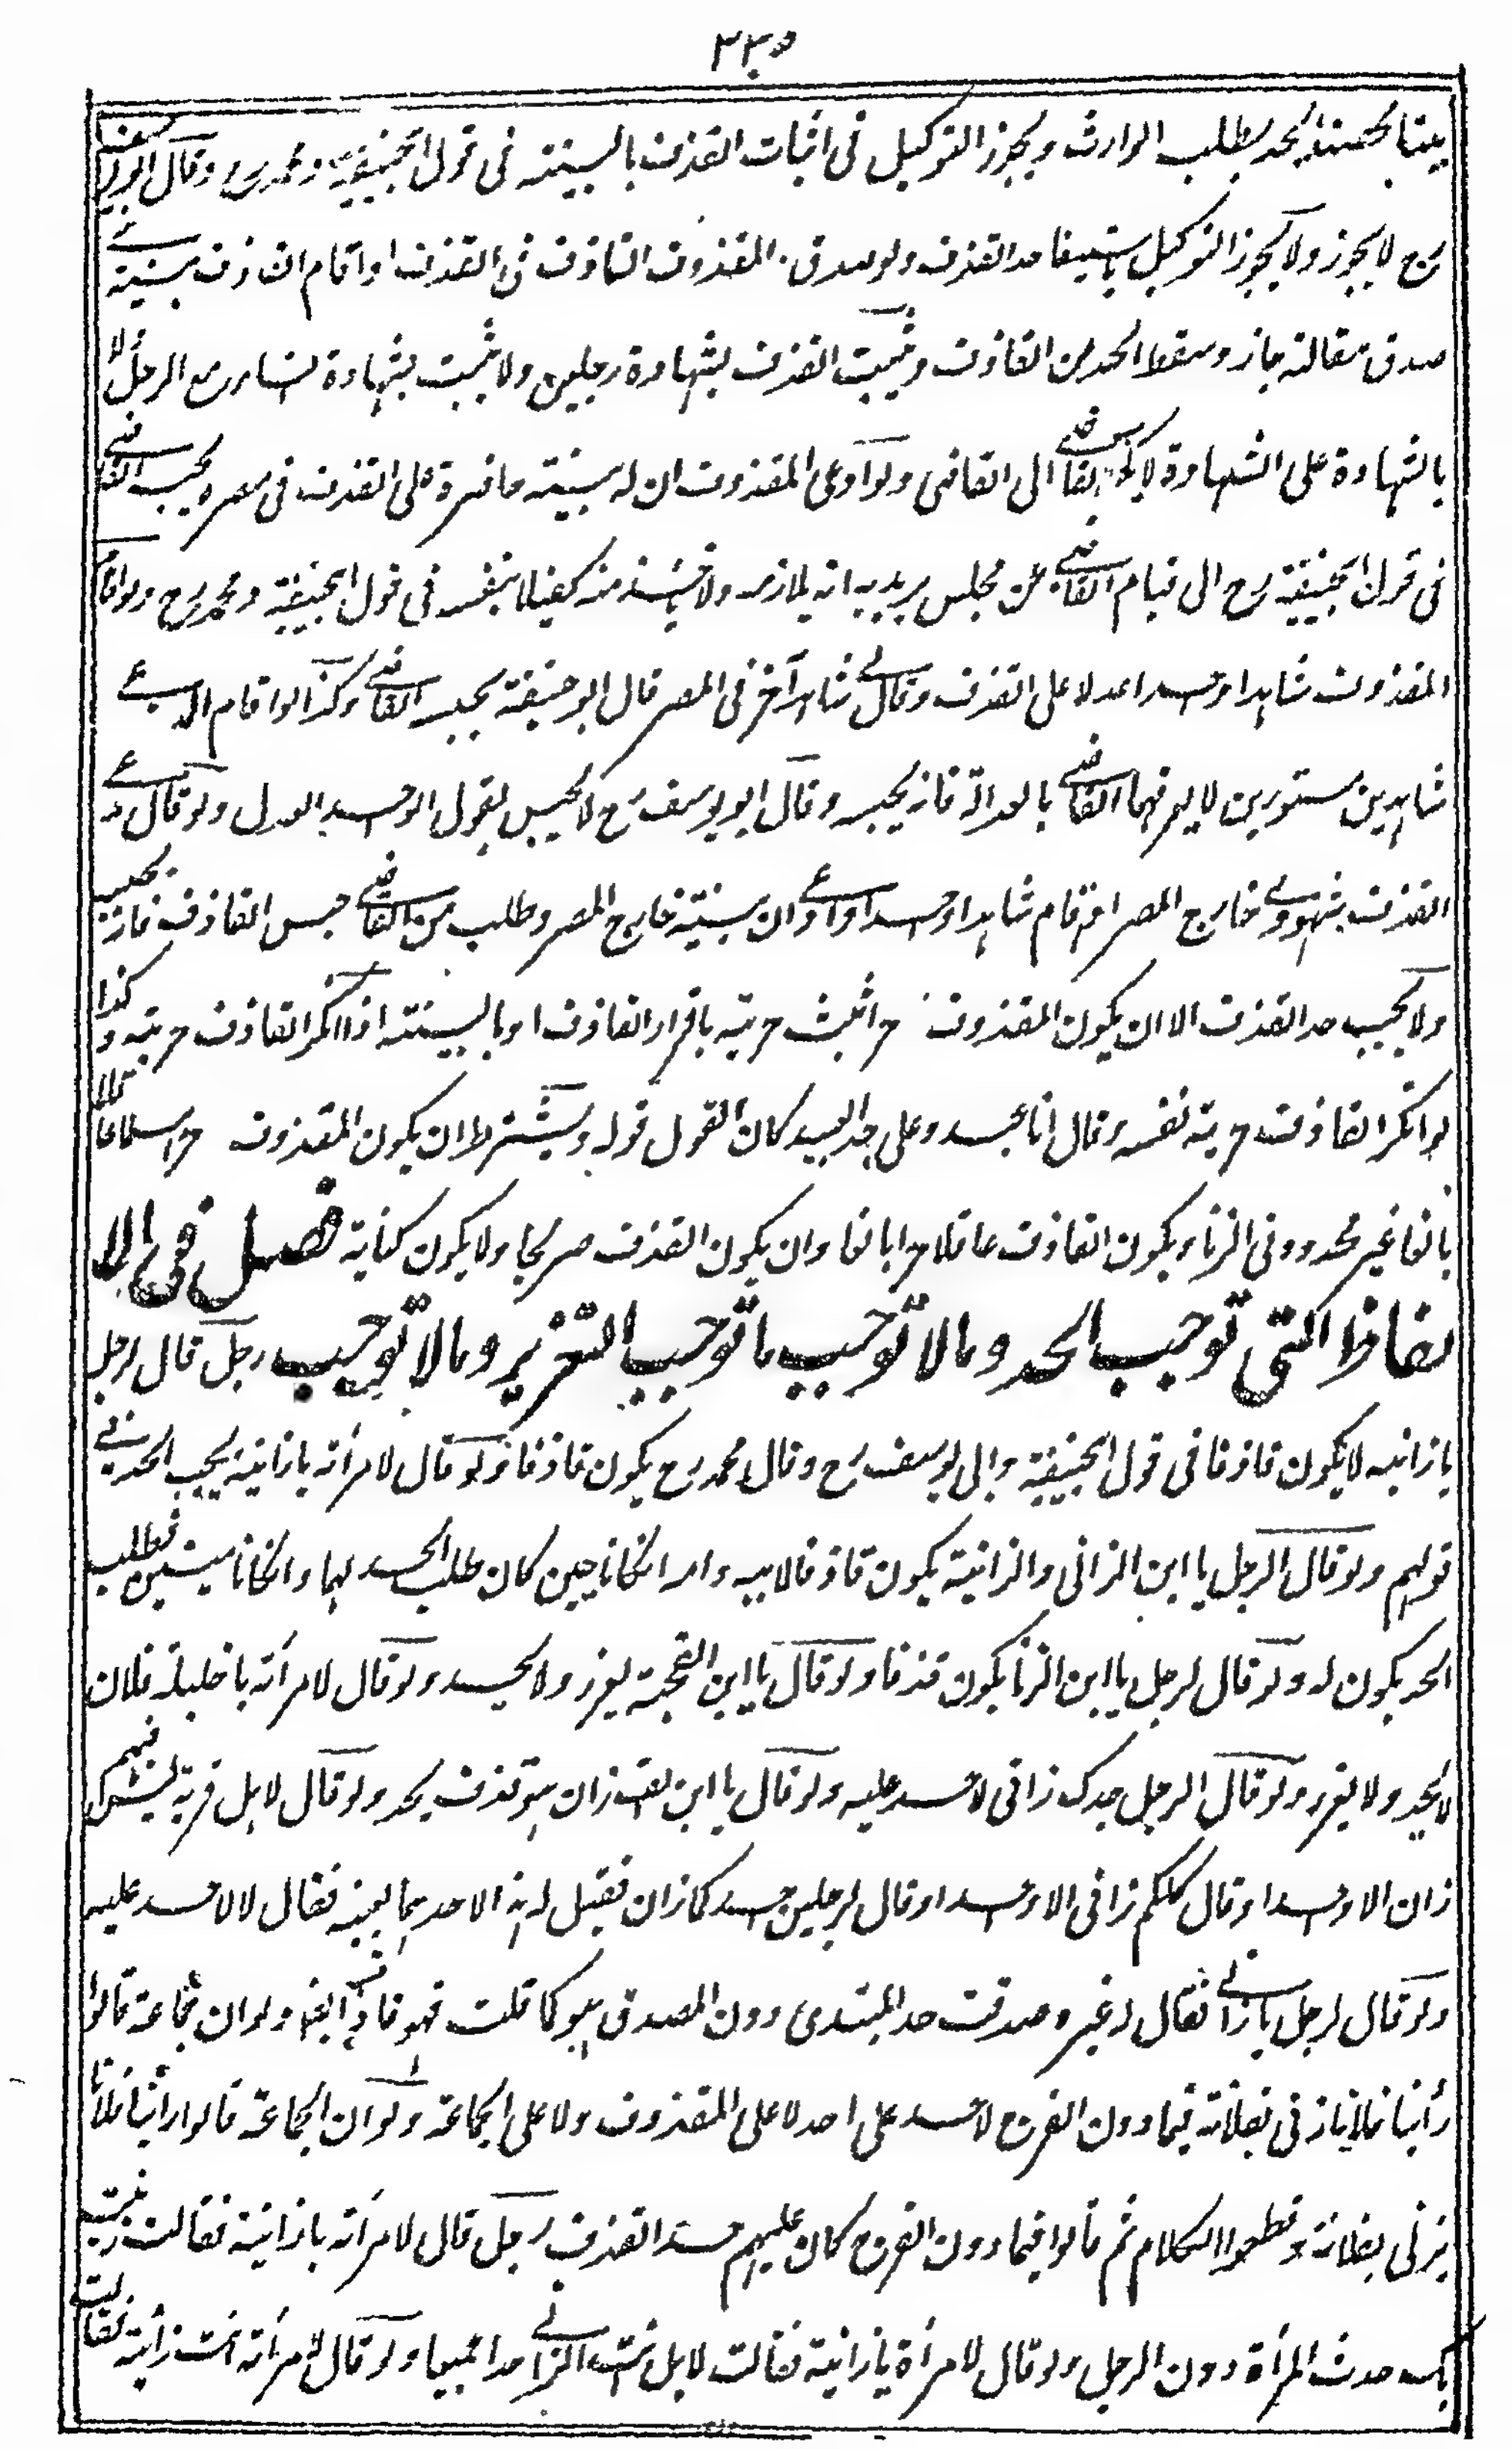 ٣٣٥
ميتا محصنا يحد بطلب الوارث ويجوز التوكيل فى اثبات القذف بالبينة فى قول ابيحنيفة ومحمد رح وقال ابو يوسف
رح لا يجوز ولا يجوز التوكيل باستيفاء حد القذف ولو صدق المقذوف القاذف فى القذف او اقام القاذف بينة على
صدق مقالته جاز وسقط الحد من القاذف ويثبت القذف بشهادة رجلين ولا يثبت بشهادة نساء مع الرجل ولا
بالشهادة على الشهادة لا كتاب القاضى الى القاضى ولو ادعى المقذوف ان له بينة حاضرة على القذف فى مصر ه يحبسه القاضى
فى قول ابيحنيفة رح الى قيام القاضى عن مجلس يريد به انه يلازمه ولا يؤخذ منه كفيلا بنفسه فى قول ابيحنيفة ومحمد رح ولو اقام
المقذوف شاهدا واحدا عدلا على القذف وقال لى شاهد آخر فى المصر قال ابو حنيفة يحبسه القاضى وكذا لو اقام المدعى
شاهدين مستورين لا يعرفهما القاضى بالعدالة فانه يحبسه وقال ابو يوسف رح لا يحبس بقول الواحد العدل ولو قال مدعى
القذف شهودى خارج المصر او اقام شاهدا واحدا وادعى ان بينته خارج المصر وطلب من القاضى حبس القاذف فانه لا يحبسه
ولا يجب حد القذف الا ان يكون المقذوف حرا تثبت حريته باقرار القاذف او بالبينة اذا انكر القاذف حريته وكذا
لو انكر القاذف حرية نفسه وقال انا عبد وعلى حد العبيد كان القول قوله ويشترط ان يكون المقذوف حرا مسلما عاقلا
بالغا غير محدود فى الزنا ويكون القاذف عاقلا حرا بالغا وان يكون القذف صريحا ولا يكون كناية فصل فى الا
لفاظ التى توجب الحد وما لا توجب ما توجب التعزير وما لا توجب رجل قال لرجل
يا زانيه لا يكون قاذفا فى قول ابيحنيفة وابى يوسف رح وقال محمد رح يكون قاذفا ولو قال لامرأته يا زانية يجب الحد فى
قولهم ولو قال الرجل يا ابن الزانى والزانية يكون قاذفا لابيه وامه انكانا حيين كان طلب الحد لهما وانكانا ميتين فطلب
الحد يكون له ولو قال لرجل يا ابن الزنا يكون قذفا ولو قال يا ابن القحبة يعزر ولا يحد ولو قال لامرأته يا خليلة فلان
لا يحد ولا يعزر ولو قال الرجل جدك زانى لا حد عليه ولو قال يا ابن الف زان هو قذف يحد ولو قال لاهل قرية ليس فيهم
زان الا واحدا وقال كلكم زانى الا واحدا او قال لرجلين احدكما زان فقيل له هذا لاحدهما بعينه فقال لا لا حد عليه
ولو قال لرجل يا زانى فقال له غيره صدقت حد المبتدئ دون المصدق هو كما قلت فهو قاذف ايضا ولو ان جماعة قالوا
رأينا فلانا زنى بفلانة فيما دون الفرج لا حد على احد لا على المقذوف ولا على الجماعة ولو ان الجماعة قالوا رأينا فلانا
يزنى بفلانة وقطعوا الكلام ثم قالوا فيما دون الفرج كان عليهم حد القذف رجل قال لامرأته يا زانية فقالت زنيت
بك حدت المرأة دون الرجل ولو قال لامرأة يا زانية فقالت لا بل انت الزانى حدا جميعا ولو قال لامرأته انت زانية فقالت